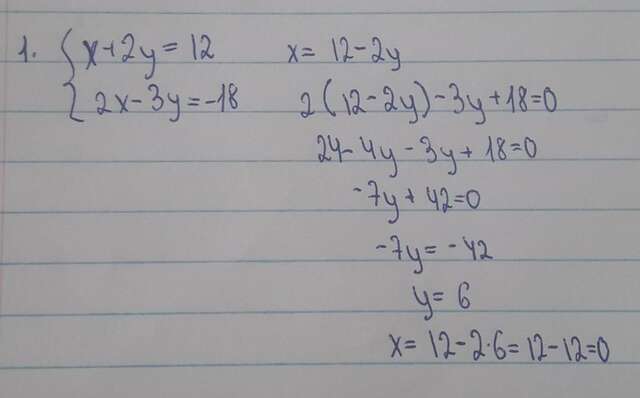 1. { x+2y=12 x= 12-2y
2x-3y=-18 2(12-2y)-3y+18=0
24-4y-3y+18=0
-7y+42=0
-7y=-42
y=6
x= 12-2·6=12-12=0